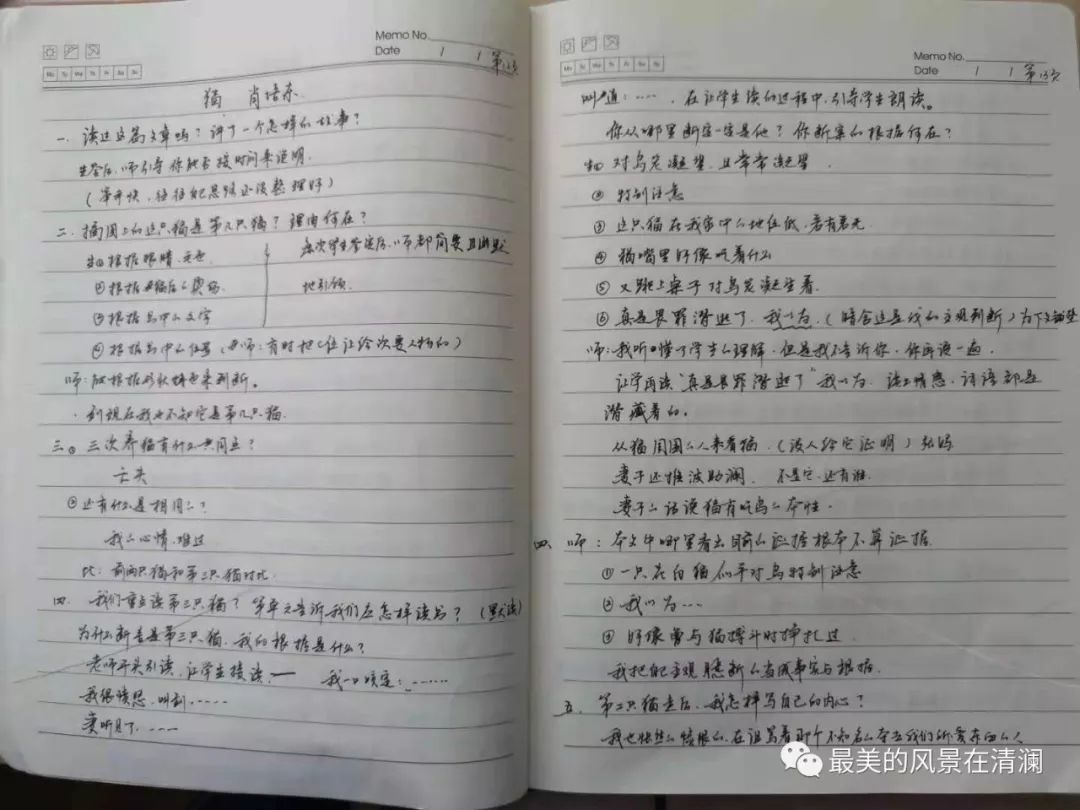 Memo No.
Date / / 第12页
Mo Tu We Th Fr Sa Su
猫 肖培东
一、读过这篇文章吗?讲了一个怎样的故事?
生答后,师引导你能否按时间来说明
(举手快,往往把思路还没整理好)
二、插图上的这只猫是第几只猫?理由何在?
生①根据眼睛,毛色
每次学生答完后,师都简要且
②根据
地引领
③根据书中的文字
④根据书中的位置(师:有时把C位让给次要人物的)
师:根据形状特色来判断。
·到现在我也不知它是第几只猫
三。三次养猫有什么共同点?
亡失
②还有什么是相同的?
我的心情,难过
比:前两只猫和第三只猫对比
四 我们重点读第三只猫?第单元告诉我们应怎样读书?(默读)
为什么断言是第三只猫,我的根据是什么?
老师开头引读,让学生接读:— 我一口咬定:……
我很愤怒,叫到……
妻听见了,……
Memo No.
Date / / 第13页
Mo Tu We Th Fr Sa Su
叫道:……,在让学生读的过程中,引导学生朗读。
你从哪里断定一定是他?你断案的根据何在?
生① 对鸟笼凝望,且常常凝望
② 特别注意
③ 这只猫在我家中的地位低,若有若无
④ 猫嘴里好像吃着什么
⑤ 又跳上桌子对鸟笼凝望着.
⑥ 真是畏罪潜逃了,我以为,(暗含这是我的主观判断)为下文铺垫
师:我听懂了学生的理解,但是我不告诉你,你再读一遍.
让学再读“真是畏罪潜逃了”我以为.读上情感,话语都是
潜藏着的.
从猫周围的人来看猫,(没人给它证明)张妈
妻子还推波助澜 不是它,还有谁.
妻子的话误猫有吃鸟的本性.
四、师:本文中哪里看出目前的证据根本不算证据
① 一只花白猫似乎对鸟特别注意
② 我以为…
③ 好像曾与猫搏斗时挣扎过
我把主观臆断的当成事实与根据.
五、第二只猫走后,我怎样写自己的内心?
我也怅然的愤恨的,在诅骂着那个不知名的夺去我们所爱东西的人
最美的风景在清澜